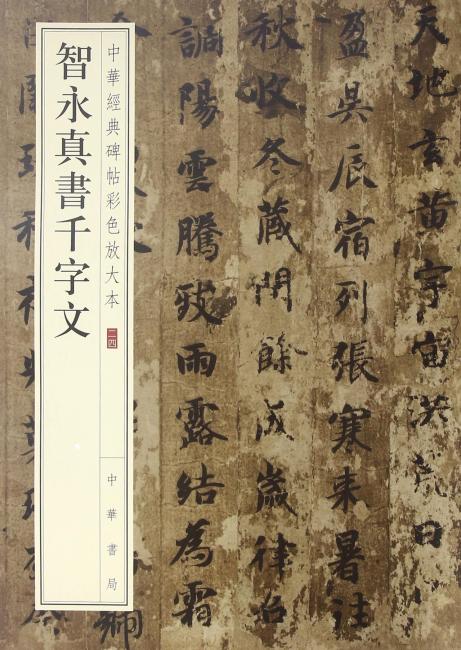 智永真書千字文
中華經典碑帖彩色放大本 二四
中華書局
天地玄黄宇宙洪荒日
盈昃辰宿列張寒来暑往
秋收冬藏閏餘成歲律召
調陽雲騰致雨露結為霜